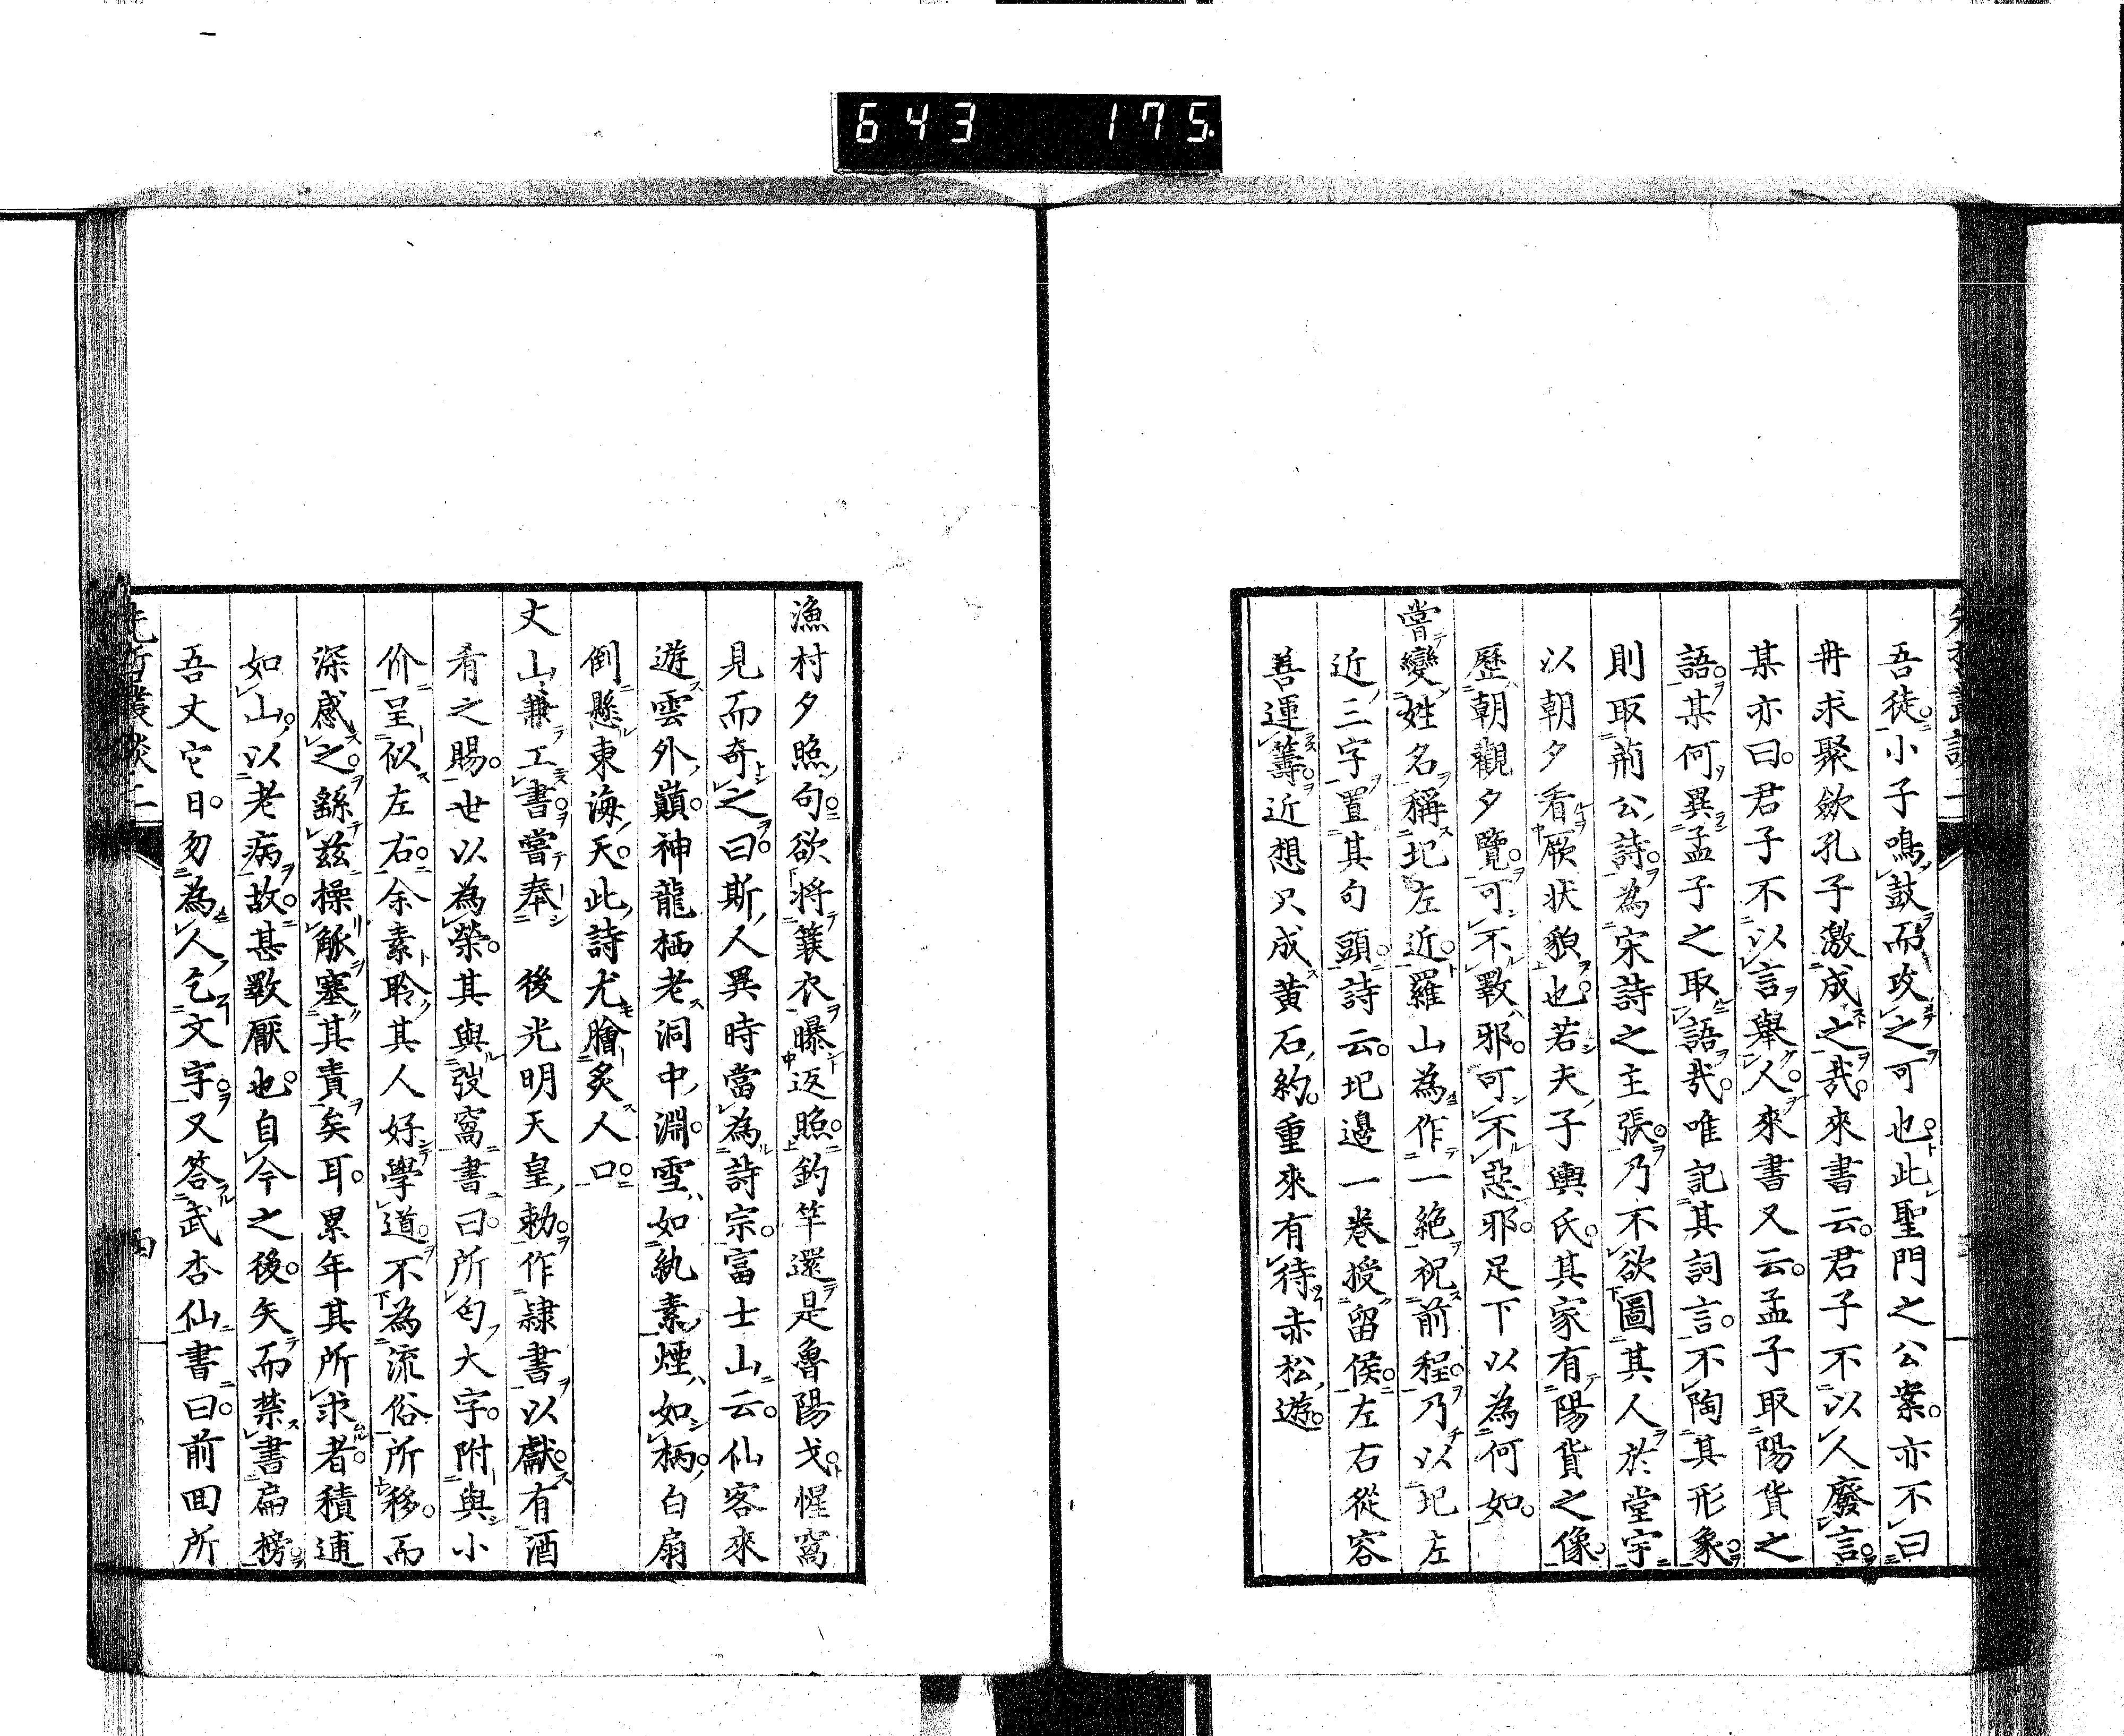 643 175
吾徒小子鳴鼓而攻之可也此聖門之公案亦不曰
冉求聚斂孔子激成之哉來書云君子不以人廢言
某亦曰君子不以言舉人來書又云孟子取陽貨之
語某何異孟子之取語哉唯記其詞言不陶其形象
則取荊公詩為宋詩之主張乃不欲圖其人於堂宇
以朝夕看厥状貌也若夫子輿氏其家有陽貨之像
歷朝觀夕覽可不斁邪可不惡邪足下以為何如
嘗變姓名稱圯左近羅山為作一絶祝前程乃以圯左
近三字置其句頭詩云圯邊一巻授留侯左右從容
善運籌近想只成黄石約重來有待赤松遊
漁村夕照句欲将簑衣曝返照釣竿還是魯陽戈惺窩
見而奇之曰斯人異時當為詩宗富士山云仙客來
遊雲外巓神龍栖老洞中淵雪如紈素煙如柄白扇
倒懸東海天此詩尤膾炙人口
丈山兼工書嘗奉　後光明天皇勅作隷書以獻有酒
肴之賜世以為榮其與弢窩書曰所匄大字附與小
价呈似左右余素聆其人好學道不為流俗所移而
深感之繇茲操觚塞其責矣耳累年其所求者積逋
如山以老病故甚斁厭也自今之後矢而禁書扁榜
吾丈它日勿為人乞文字又答武杏仙書曰前回所
先哲叢談二
四